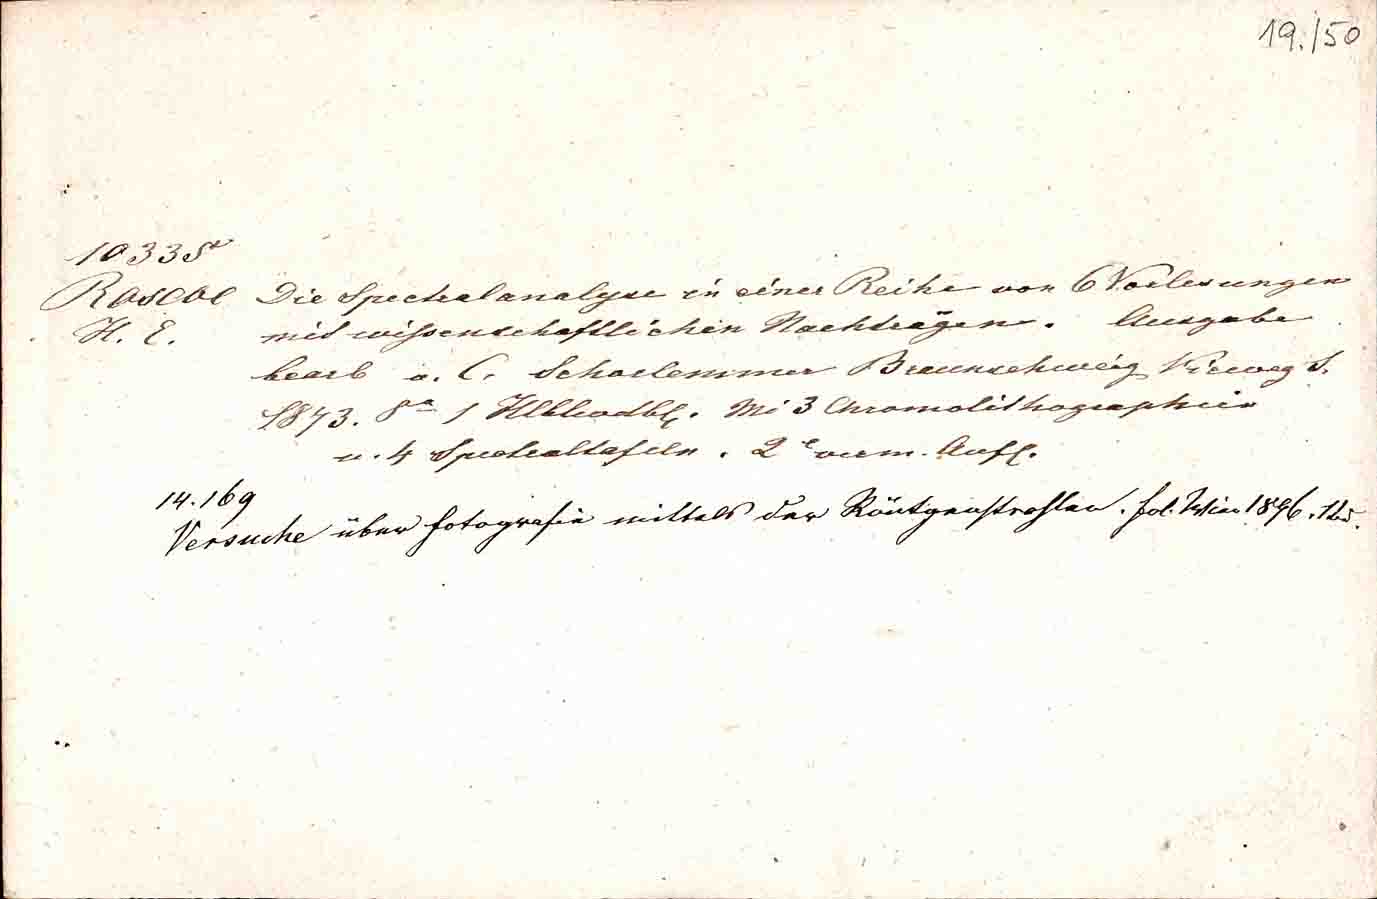 19./50
10335
Roscoe Die Spectralanalyse in einer Reihe von 6 Vorlesungen
H. E. mit wissenschaftlichen Nachträgen. Ausgabe
bearb v. C. Schorlemmer Braunschweig Vieweg S.
1873. 8° 1 Hlblwdbd. Mi 3 Chromolithographien
u. 4 Spectraltafeln. 2e verm. Aufl.
14.169
Versuche über Fotografie mittels der Röntgenstrahlen. fol. Wien 1896.